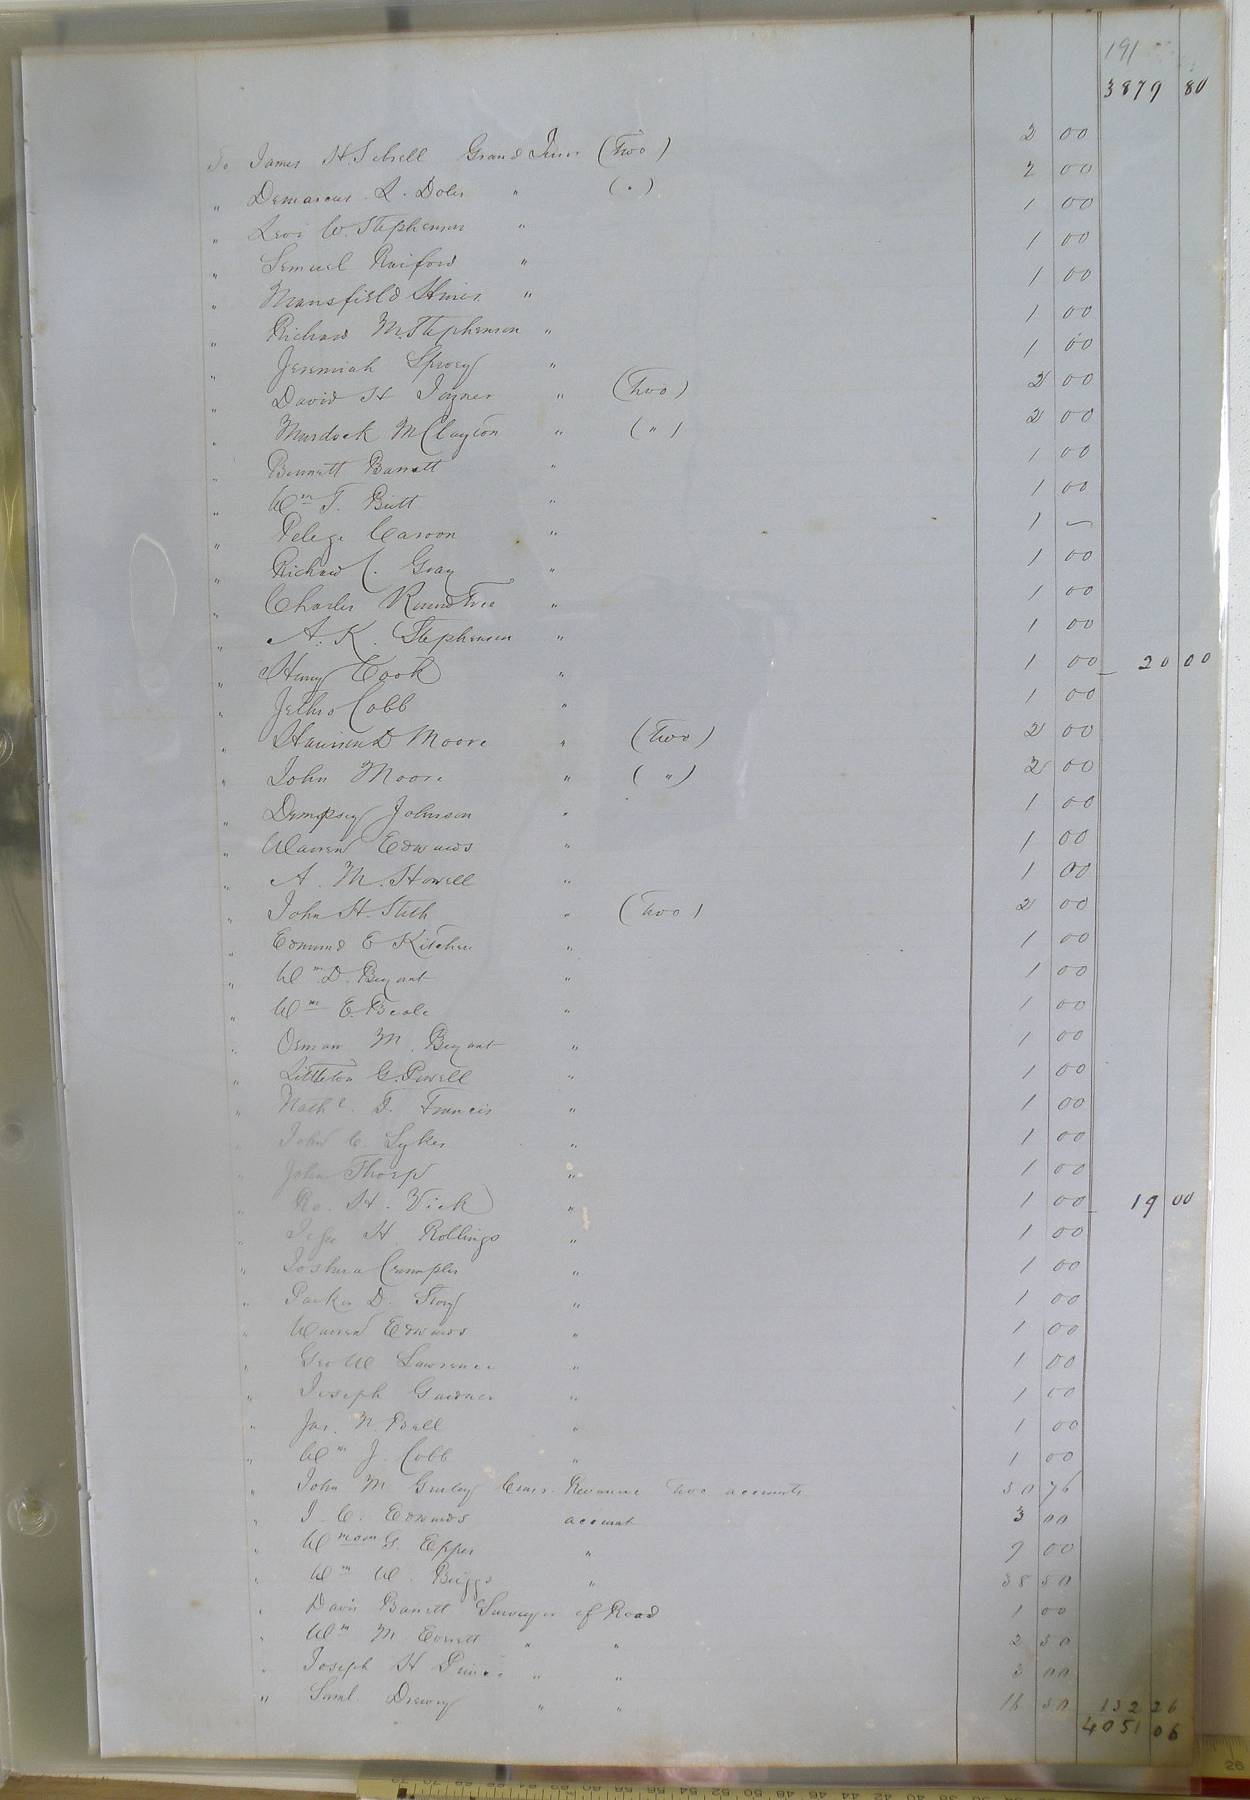 191
3879 80
To James H Sebrell Grand Juror (Two) 2 00
" Demarcus L. Doles " (") 2 00
" Levi W. Stephenson " 1 00
" Lemuel Raiford " 1 00
" Mansfield Hines " 1 00
" Richard M. Stephenson " 1 00
" Jeremiah Spivey " 1 00
" David H Joyner " (Two) 2 00
" Murdock McClayton " (") 2 00
" Bennett Barrett " 1 00
" Wm T. Britt " 1 00
" Pelege Carson " 1 —
" Richard C. Gray " 1 00
" Charles Roundtree " 1 00
" A. K. Stephenson " 1 00
" Henry Cook " 1 00 20 00
" Jethro Cobb " 1 00
" D Moore " (Two) 2 00
" John Moore " (") 2 00
" Dempsey Johnson " 1 00
" Warren Edwards " 1 00
" A. M. Howell " 1 00
" John H. Stith " (Two) 2 00
" Edmund E Kitchen " 1 00
" Wm D. Bryant " 1 00
" Wm E. Beale " 1 00
" Orman M. Bryant " 1 00
" Littleton G. Powell " 1 00
" Nathl. T. Francis " 1 00
" John C. Sykes " 1 00
" John Thorp " 1 00
" Ro. H. Vick " 1 00 19 00
" Jesse H. Rollings " 1 00
" Joshua Crumpler " 1 00
" Parker D. Story " 1 00
" Warren Edwards " 1 00
" Geo W Lawrence " 1 00
" Joseph Gardner " 1 00
" Jas. N Bell " 1 00
" Wm J. Cobb " 1 00
" John M Gurley Comr. Revenue Two accounts 50 76
" J. C. Edwards account 3 00
" G. Epps " 9 00
" Wm W. Briggs " 38 50
" Davis Barrett Surveyor of Road 1 00
" Wm M Everett " " 2 50
" Joseph H Prince " " 3 00
" Saml. Drewry " " 16 50 132 26
4051 06